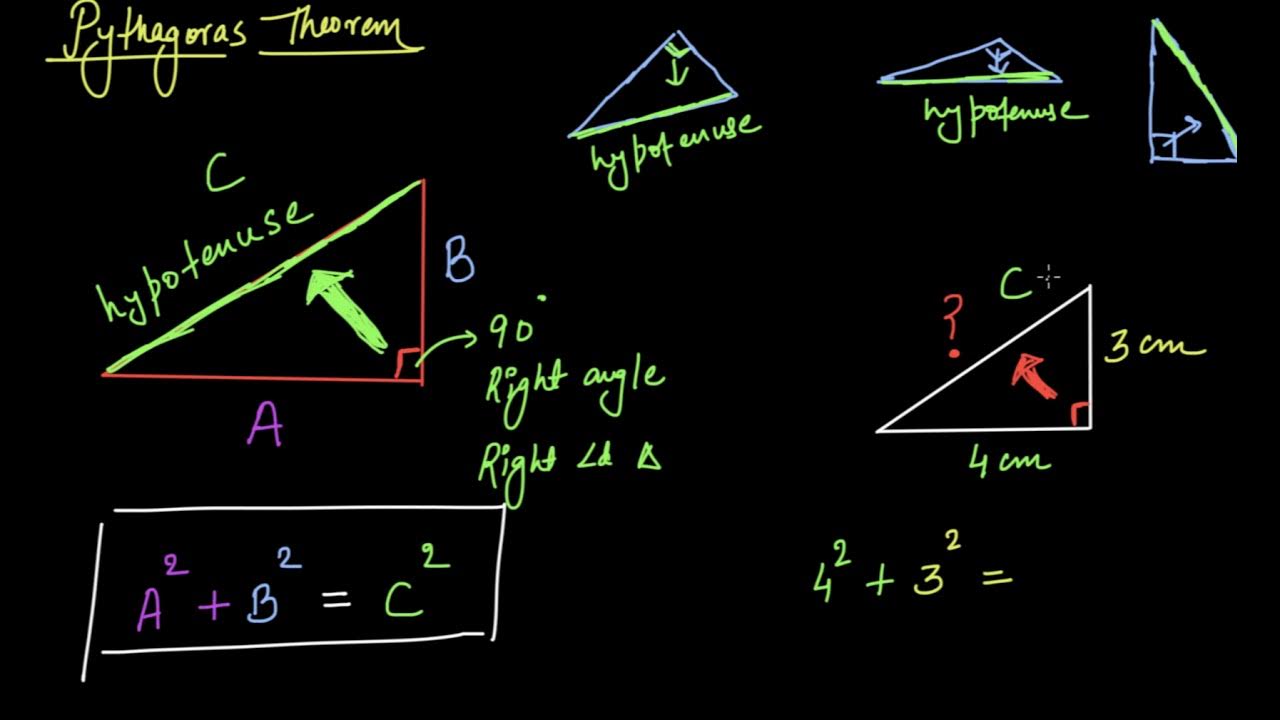 Pythagoras Theorem
hypotenuse
hypotenuse
C
hypotenuse
B
A
90°
Right angle
Right ∠d Δ
A² + B² = C²
C
?
3 cm
4 cm
4² + 3² =